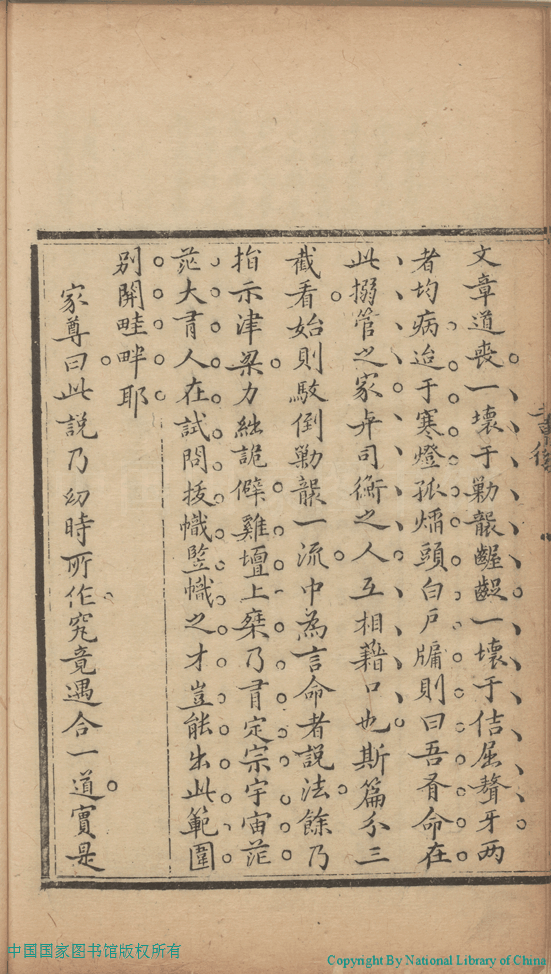 文章道喪一壞于勦襲齷齪一壞于佶屈聱牙两
者均病迨于寒燈孤燭頭白戸牖則曰吾有命在
此搦管之家弁司衡之人互相藉口也斯篇分三
截看始則駁倒勦襲一流中為言命者說法餘乃
指示津梁力絀詭僻雞壇上桒乃有定宗宇宙茫
茫大有人在試問拔幟竪幟之才豈能出此範圍
别開畦畔耶
家尊曰此説乃幼時所作究竟遇合一道實是
中国国家图书馆版权所有
Copyright By National Library of China